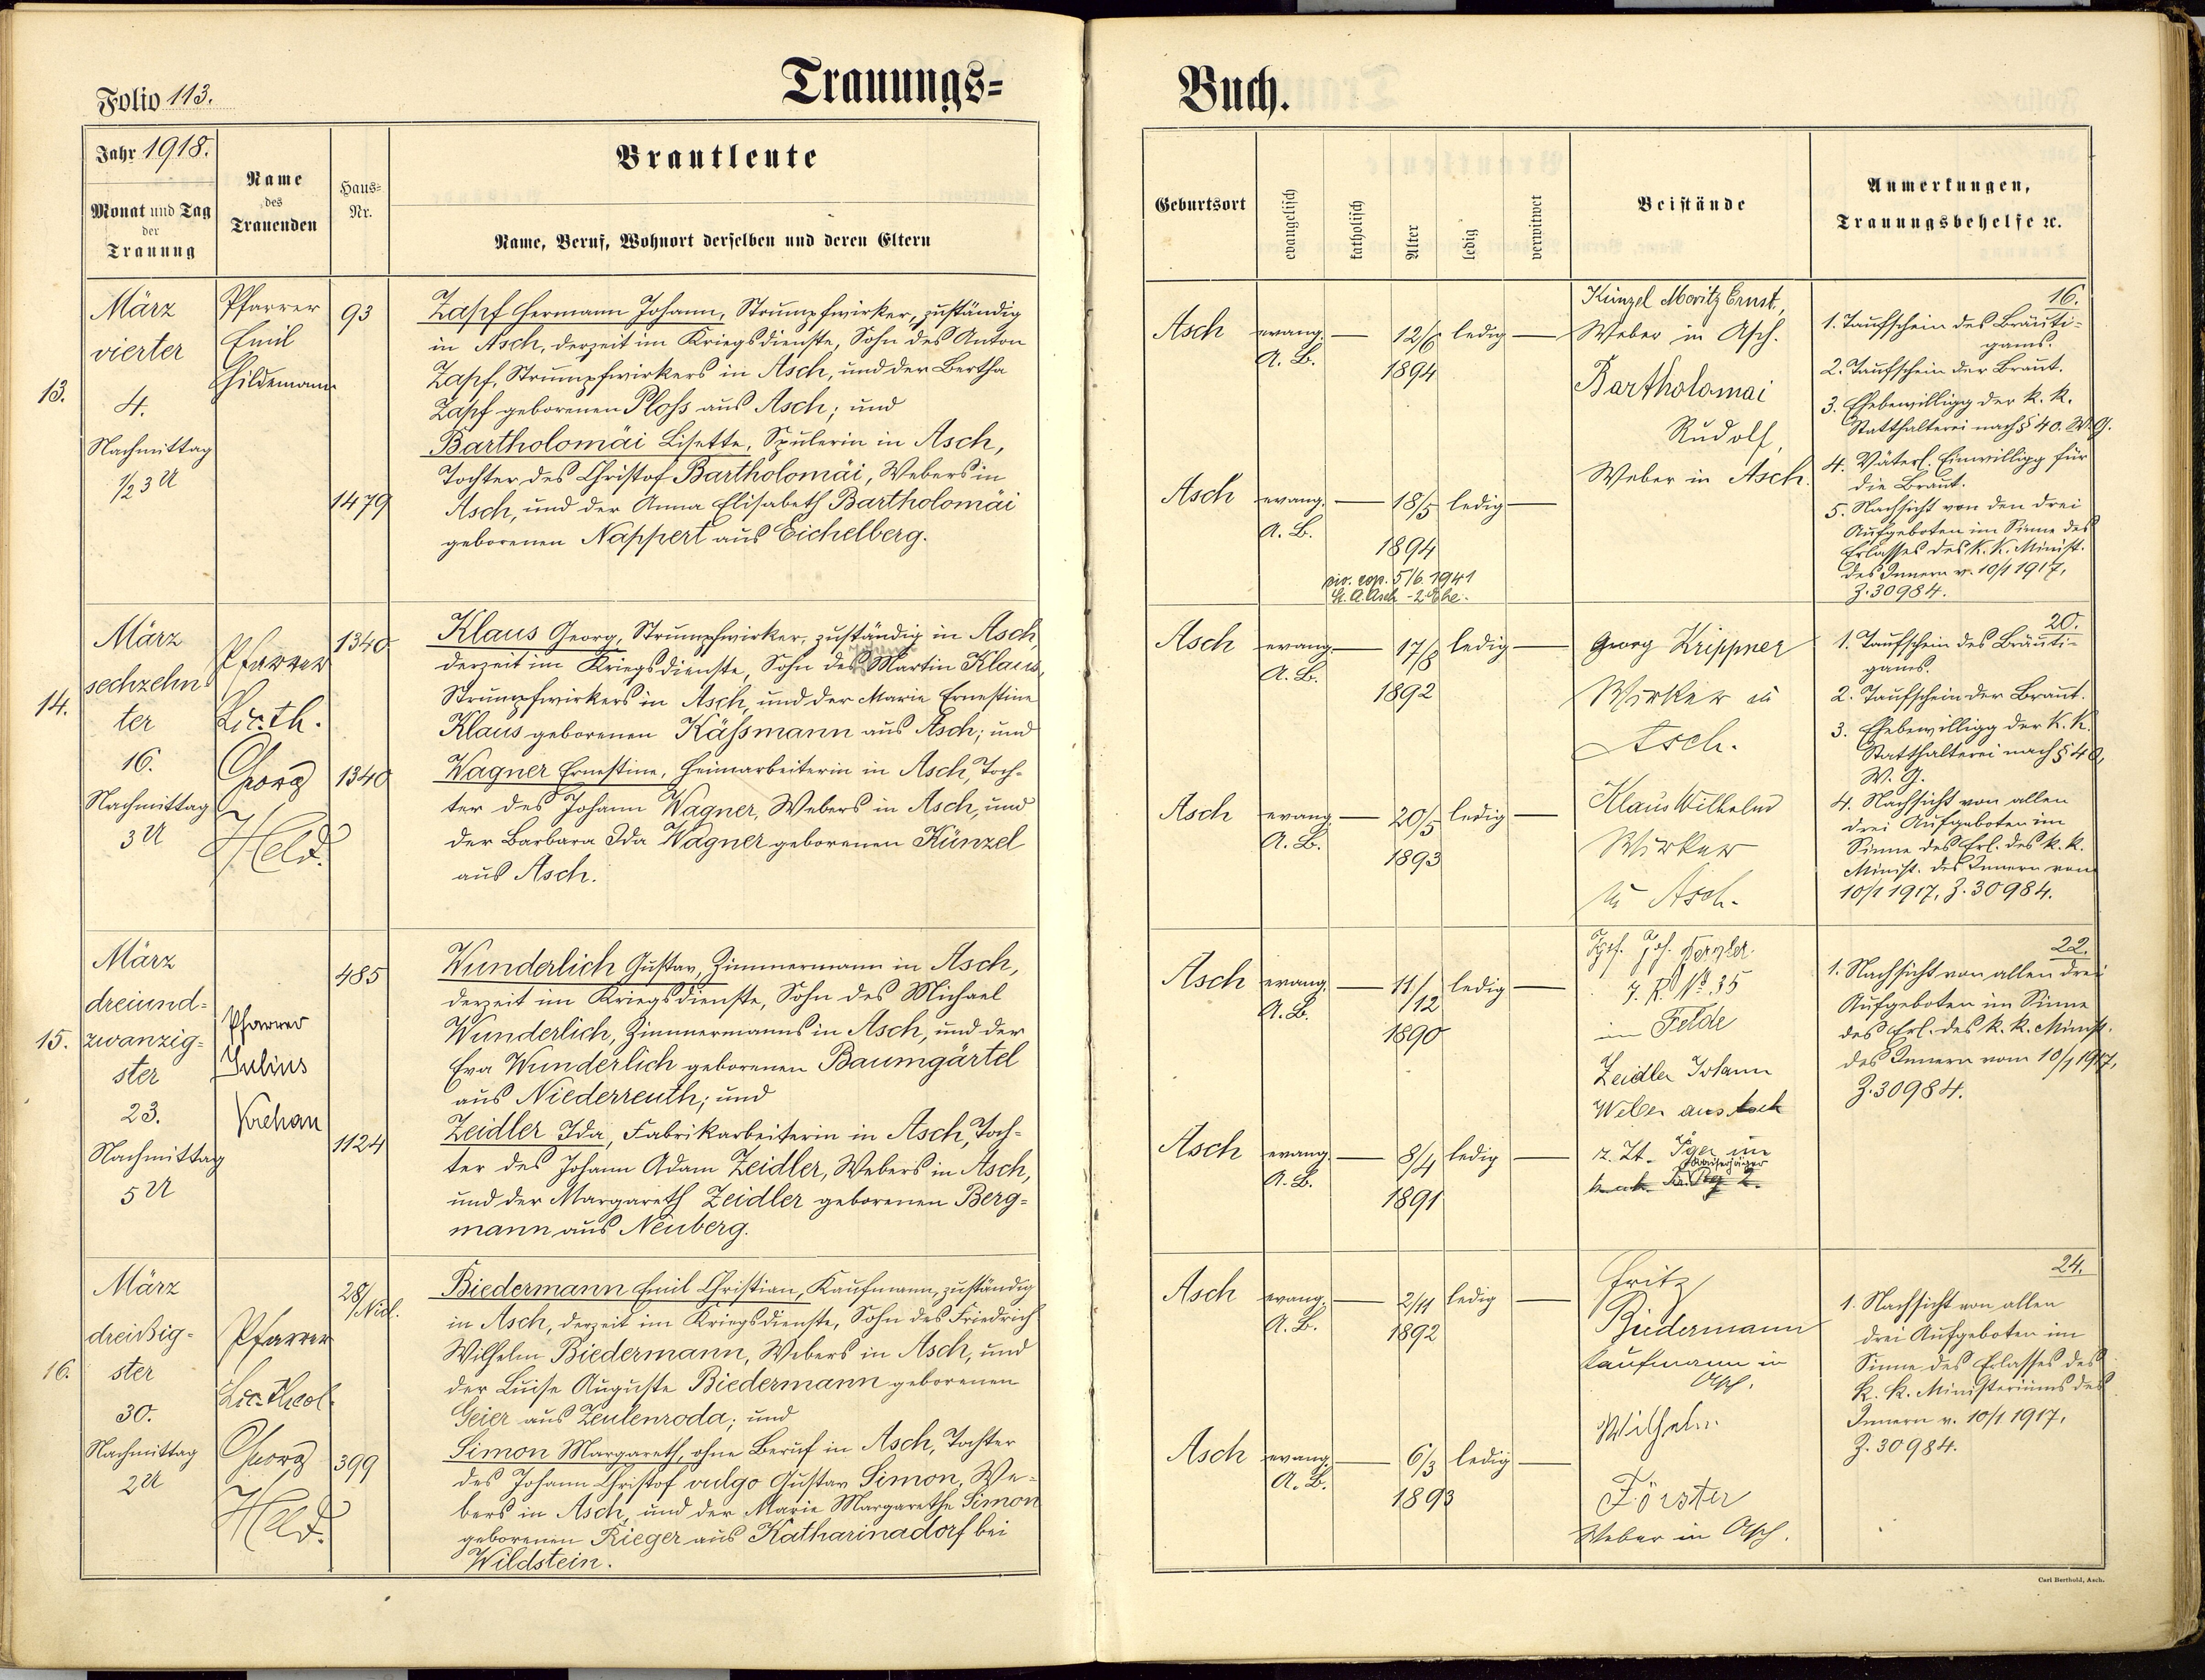 Folio 113.
Trauungs=
Buch.
Jahr 1918.
Monat und Tag
der
Trauung
Name
des
Trauenden
Haus=
Nr.
Brautleute
Name, Beruf, Wohnort derselben und deren Eltern
Geburtsort
evangelisch
katholisch
Alter
ledig
verwitwet
Beistände
Anmerkungen,
Trauungsbehelfe ꝛc.
13.
März
vierter
4.
Nachmittag
½3 U
Pfarrer
Emil
Hildemann
93
1479
Zapf Hermann Johann, Strumpfwirker, zuständig
in Asch, derzeit im Kriegsdienste, Sohn des Anton
Zapf, Strumpfwirkers in Asch, und der Bertha
Zapf geborenen Ploss aus Asch; und
Bartholomäi Lisette, Spulerin in Asch,
Tochter des Christof Bartholomäi, Webers in
Asch, und der Anna Elisabeth Bartholomäi
geborenen Nappert aus Eichelberg.
Asch evang. — 12/6 ledig —
A. B. 1894
Asch evang. — 18/5 ledig —
A. B. 1894
civ. cop. 5/6. 1941
St. A. Asch - 2. Ehe.
Künzel Moritz Ernst,
Weber in Asch.
Bartholomai
Rudolf,
Weber in Asch.
16.
1. Taufschein des Bräuti-
gams.
2. Taufschein der Braut.
3. Ehebewilligg der k. k.
Statthalterei nach § 40. W. G.
4. Väterl. Einwilligg für
die Braut.
5. Nachsicht von den drei
Aufgeboten im Sinne des
Erlasses des k. k. Minist.
des Innern v. 10/1 1917,
Z. 30984.
14.
März
sechzehn
ter
16.
Nachmittag
3 U
Pfarrer
Lic. th.
Georg
Held.
1340
1340
Klaus Georg, Strumpfwirker, zuständig in Asch,
derzeit im Kriegsdienste, Sohn des Martin Klaus,
Strumpfwirkers in Asch, und der Marie Ernestine
Klaus geborenen Kässmann aus Asch; und
Wagner Ernestine, Heimarbeiterin in Asch, Toch-
ter des Johann Wagner, Webers in Asch, und
der Barbara Ida Wagner geborenen Künzel
aus Asch.
Asch evang. — 17/8 ledig —
A. B. 1892
Asch evang. — 20/5 ledig —
A. B. 1893
Georg Krippner
Wirker in
Asch.
Klaus Wilhelm
Wirker
in Asch.
20.
1. Taufschein des Bräuti-
gams.
2. Taufschein der Braut.
3. Ehebewilligg der k. k.
Statthalterei nach § 40,
W. G.
4. Nachsicht von allen
drei Aufgeboten im
Sinne des Erl. des k. k.
Minist. des Innern vom
10/1 1917, Z. 30984.
15.
März
dreiund=
zwanzig=
ster
23.
Nachmittag
5 U
Pfarrer
Julius
Krehan
485
1124
Wunderlich Gustav, Zimmermann in Asch,
derzeit im Kriegsdienste, Sohn des Michael
Wunderlich, Zimmermanns in Asch, und der
Eva Wunderlich geborenen Baumgärtel
aus Niederreuth; und
Zeidler Ida, Fabrikarbeiterin in Asch, Toch-
ter des Johann Adam Zeidler, Webers in Asch,
und der Margareth Zeidler geborenen Berg=
mann aus Neuberg.
Asch evang. — 11/12 ledig —
A. B. 1890
Asch evang. — 8/4 ledig —
A. B. 1891
J. R. No. 35
im Felde
Zeidler Johann
Weber aus Asch
z. Zt. Jger im
22.
1. Nachsicht von allen drei
Aufgeboten im Sinne
des Erl. des k. k. Minist.
des Innern vom 10/1 1917,
Z. 30984.
16.
März
dreißig=
ster
30.
Nachmittag
2 U
Pfarrer
Lic. theol.
Georg
Held.
28/Nied.
399
Biedermann Emil Christian, Kaufmann, zuständig
in Asch, derzeit im Kriegsdienste, Sohn des Friedrich
Wilhelm Biedermann, Webers in Asch, und
der Luise Auguste Biedermann geborenen
Geier aus Zeulenroda; und
Simon Margareth, ohne Beruf in Asch, Tochter
des Johann Christof vulgo Gustav Simon, We-
bers in Asch, und der Marie Margarethe Simon
geborenen Rieger aus Katharinadorf bei
Wildstein.
Asch evang. — 2/11 ledig —
A. B. 1892
Asch evang. — 6/3 ledig —
A. B. 1893
Fritz
Biedermann
Kaufmann in
Asch.
Wilhelm
Förster
Weber in Asch.
24.
1. Nachsicht von allen
drei Aufgeboten im
Sinne des Erlasses des
k. k. Ministeriums des
Innern v. 10/1 1917,
Z. 30984.
Carl Berthold, Asch.